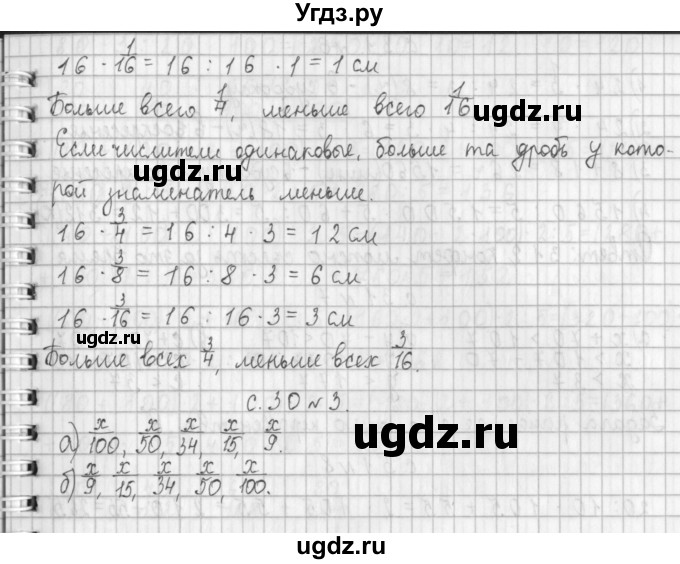 Угдз.ру
16 · 1/16 = 16 : 16 · 1 = 1 см
Больше всего 1/4, меньше всего 1/16
ugdz.ru
Если числители одинаковые, больше та дробь у кото-
рой знаменатель меньше.
16 · 3/4 = 16 : 4 · 3 = 12 см
16 · 3/8 = 16 : 8 · 3 = 6 см
16 · 3/16 = 16 : 16 · 3 = 3 см
ugdz.ru
Больше всех 3/4, меньше всех 3/16.
с. 30 №3.
ugdz.ru
а) x/100, x/50, x/34, x/15, x/9.
б) x/9, x/15, x/34, x/50, x/100.
ugdz.ru
ugdz.ru